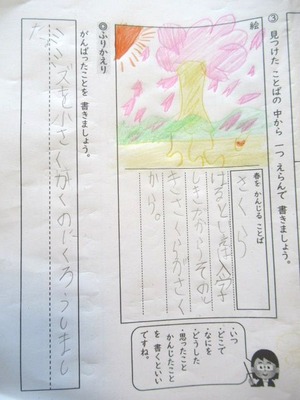 ③ 見つけた ことばの 中から 一つ えらんで 書きましょう。
絵
春を かんじる ことば
さくら
はるといえば入学
しきだから!そのと
きさくらがさく
から。
・いつ
・どこで
・なにを
・どうした
・思ったこと
かんじたこと
を 書くといい
ですね。
◎ふりかえり
がんばったことを 書きましょう。
ミミズを小さくかくのにくろうしまし
た。